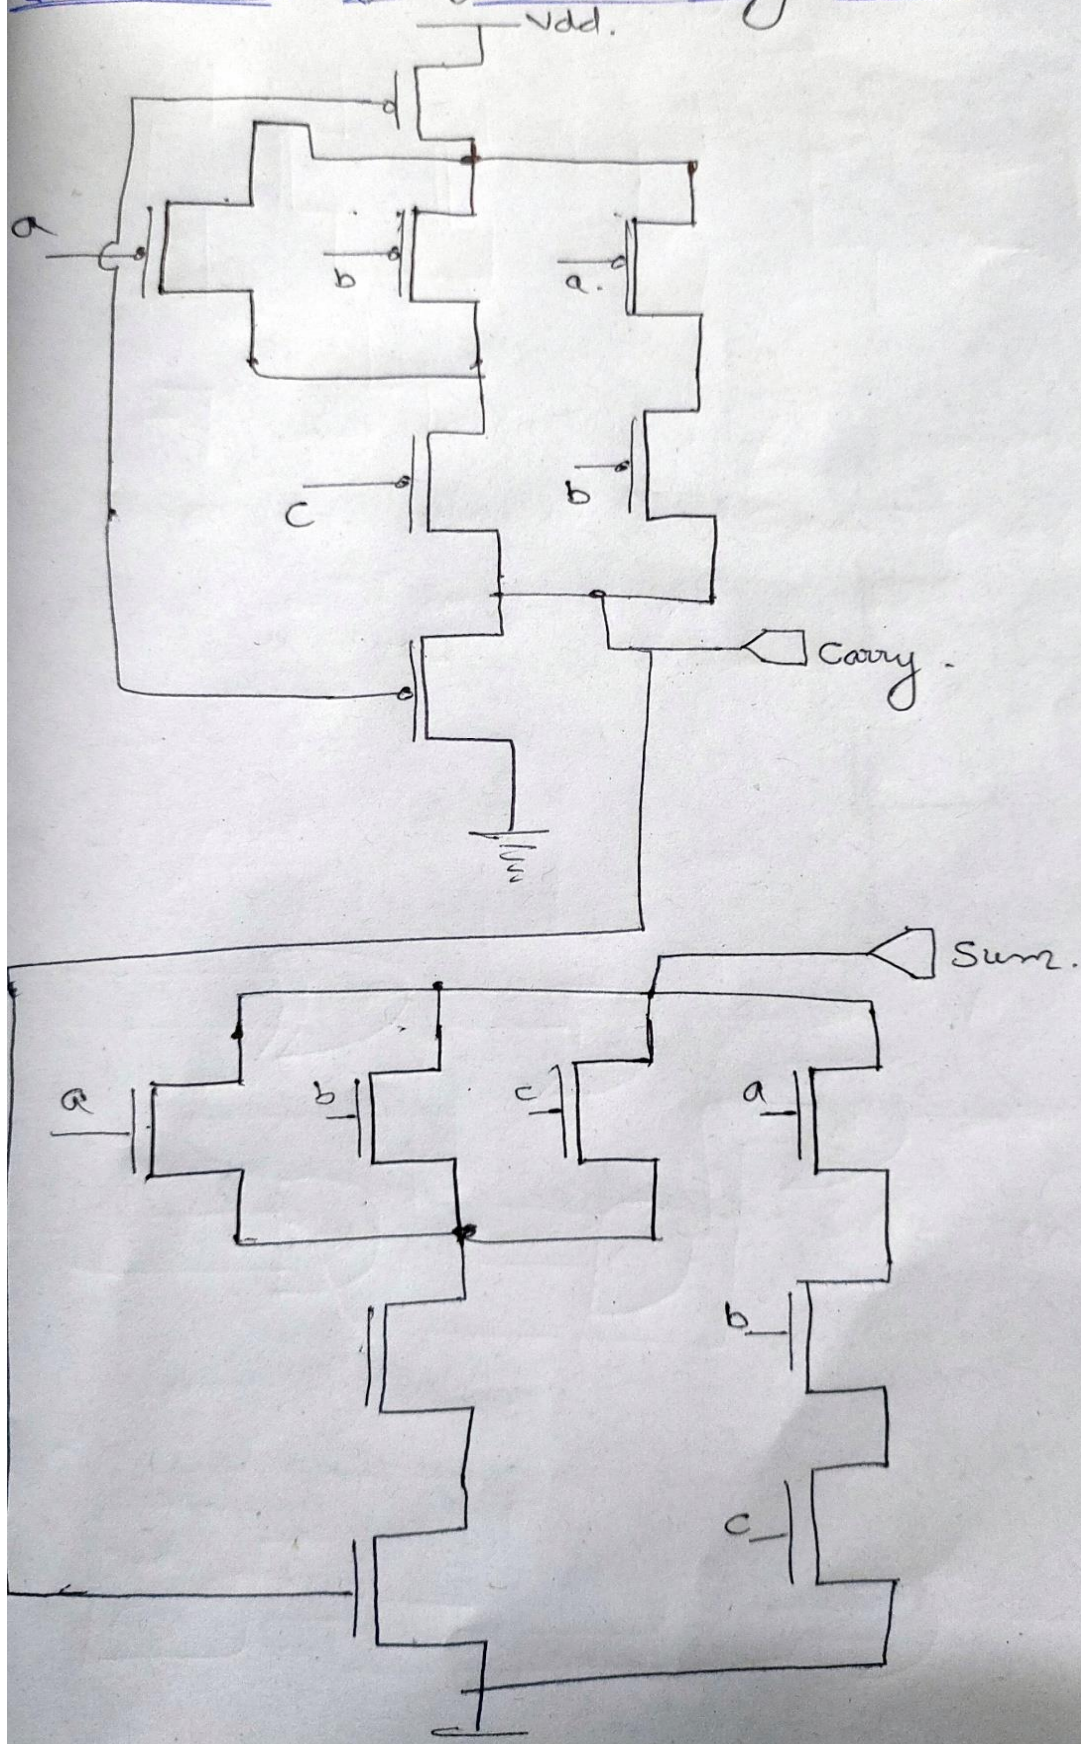 Vdd.
a
b
a.
c
b
Carry.
Sum.
a
b
c
a
b
c